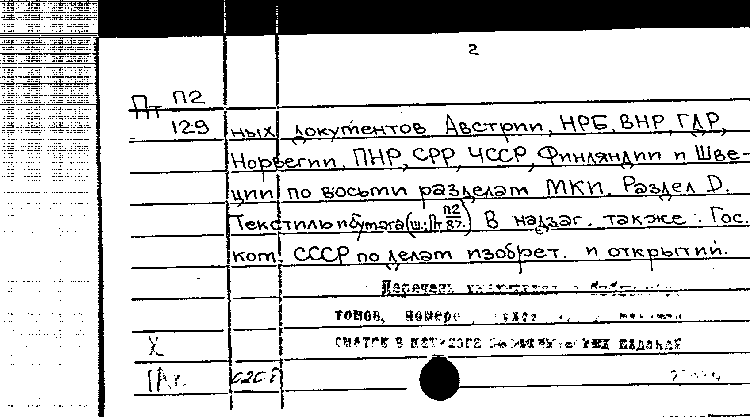 2
Пт П2
129
ных документов Австрии, НРБ, ВНР, ГДР,
Норвегии, ПНР, СРР, ЧССР, Финляндии и Шве-
ции по восьми разделам МКИ. Раздел D.
Текстиль и бумага (ш. Пт П2/87.) В надзаг. также: Гос.
ком. СССР по делам изобрет. и открытий.
Перечень
томов, номера
смотри в каталоге изданий
X